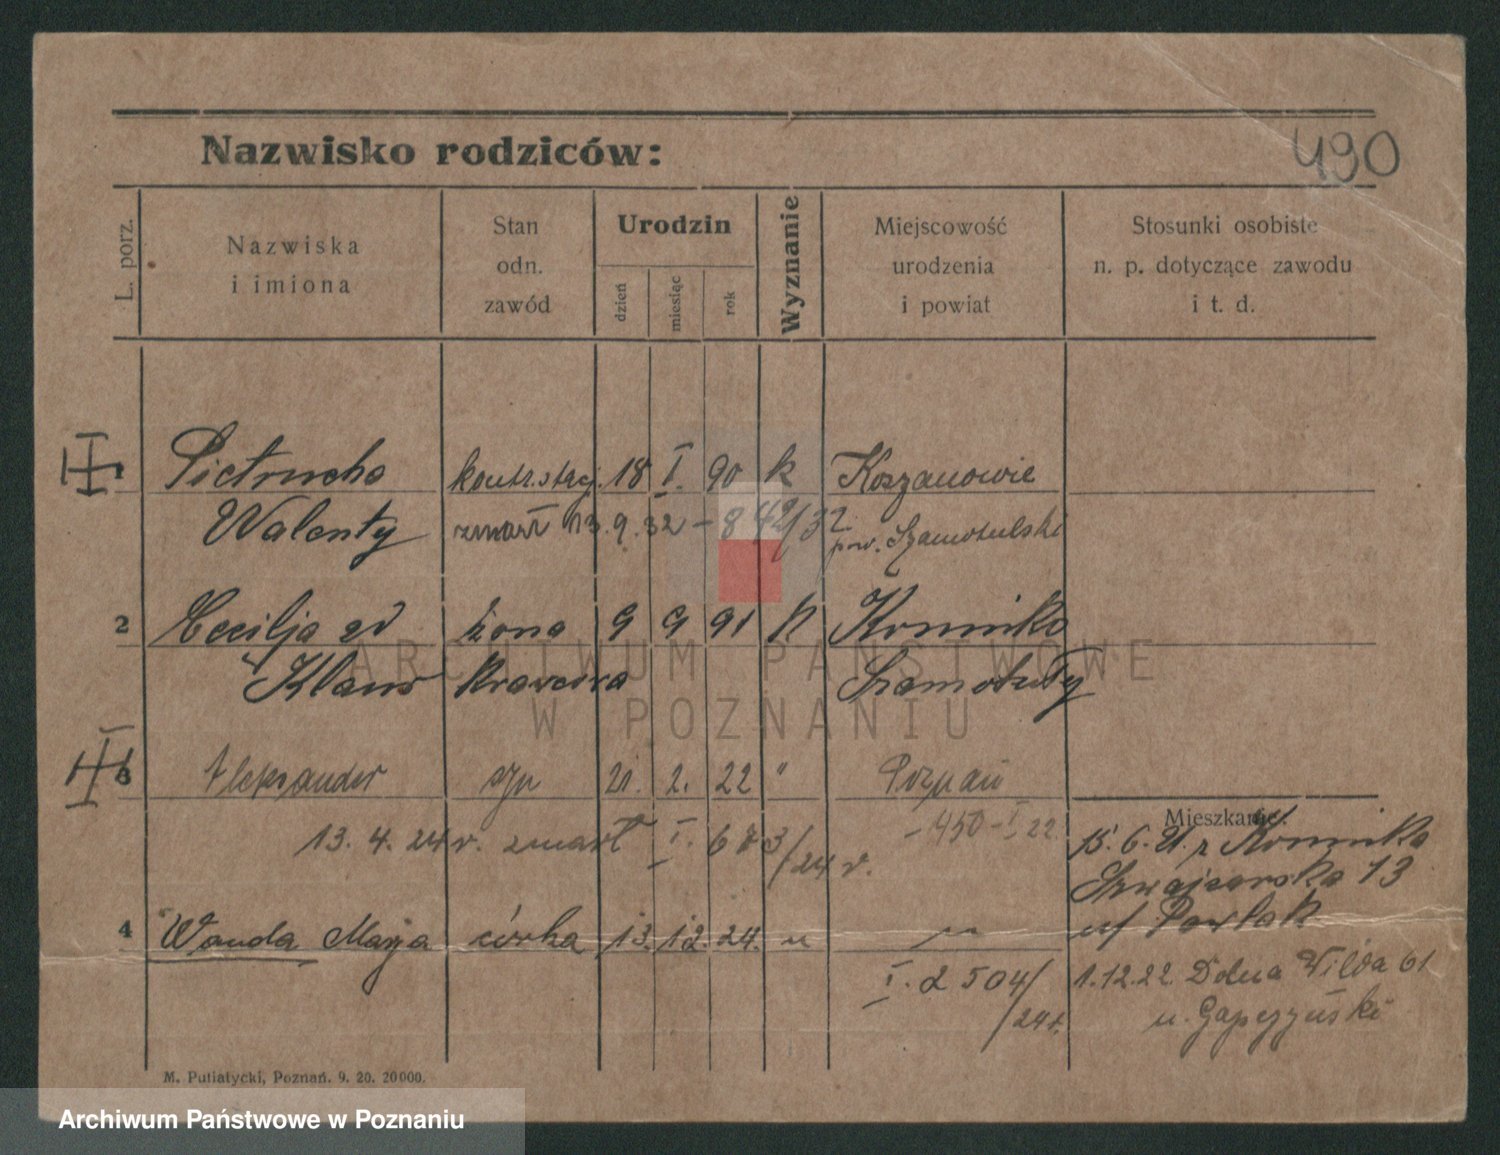 Nazwisko rodziców:
490
L. porz.
Nazwiska
i imiona
Stan
odn.
zawód
Urodzin
dzień
miesiąc
rok
Wyznanie
Miejscowość
urodzenia
i powiat
Stosunki osobiste
n. p. dotyczące zawodu
i t. d.
1 Pietrucha kontr. stacj. 18 I. 90 k Koszanowie
Walenty zmarł 13.9.32 - 8 42/32 pow. Szamotulski
2 Cecilja zd żona 9 9 91 k Kominko
Klaus Krawcowa Szamotuły
3 Aleksander syn 21. 2. 22 " Poznań
-450-I 22.
13. 4. 24 r. zmarł I. 673/24 r.
Mieszkanie:
15. 6. 21. z Kominka
Szwajcarska 13
u/ Pawlak
4 Wanda Marja córka 13. 12. 24. " "
I. 2504/24 r.
1.12.22. Dolna Wilda 61
u. Gapczyński
M. Putiatycki, Poznań. 9. 20. 20000.
ARCHIWUM PAŃSTWOWE
W POZNANIU
Archiwum Państwowe w Poznaniu